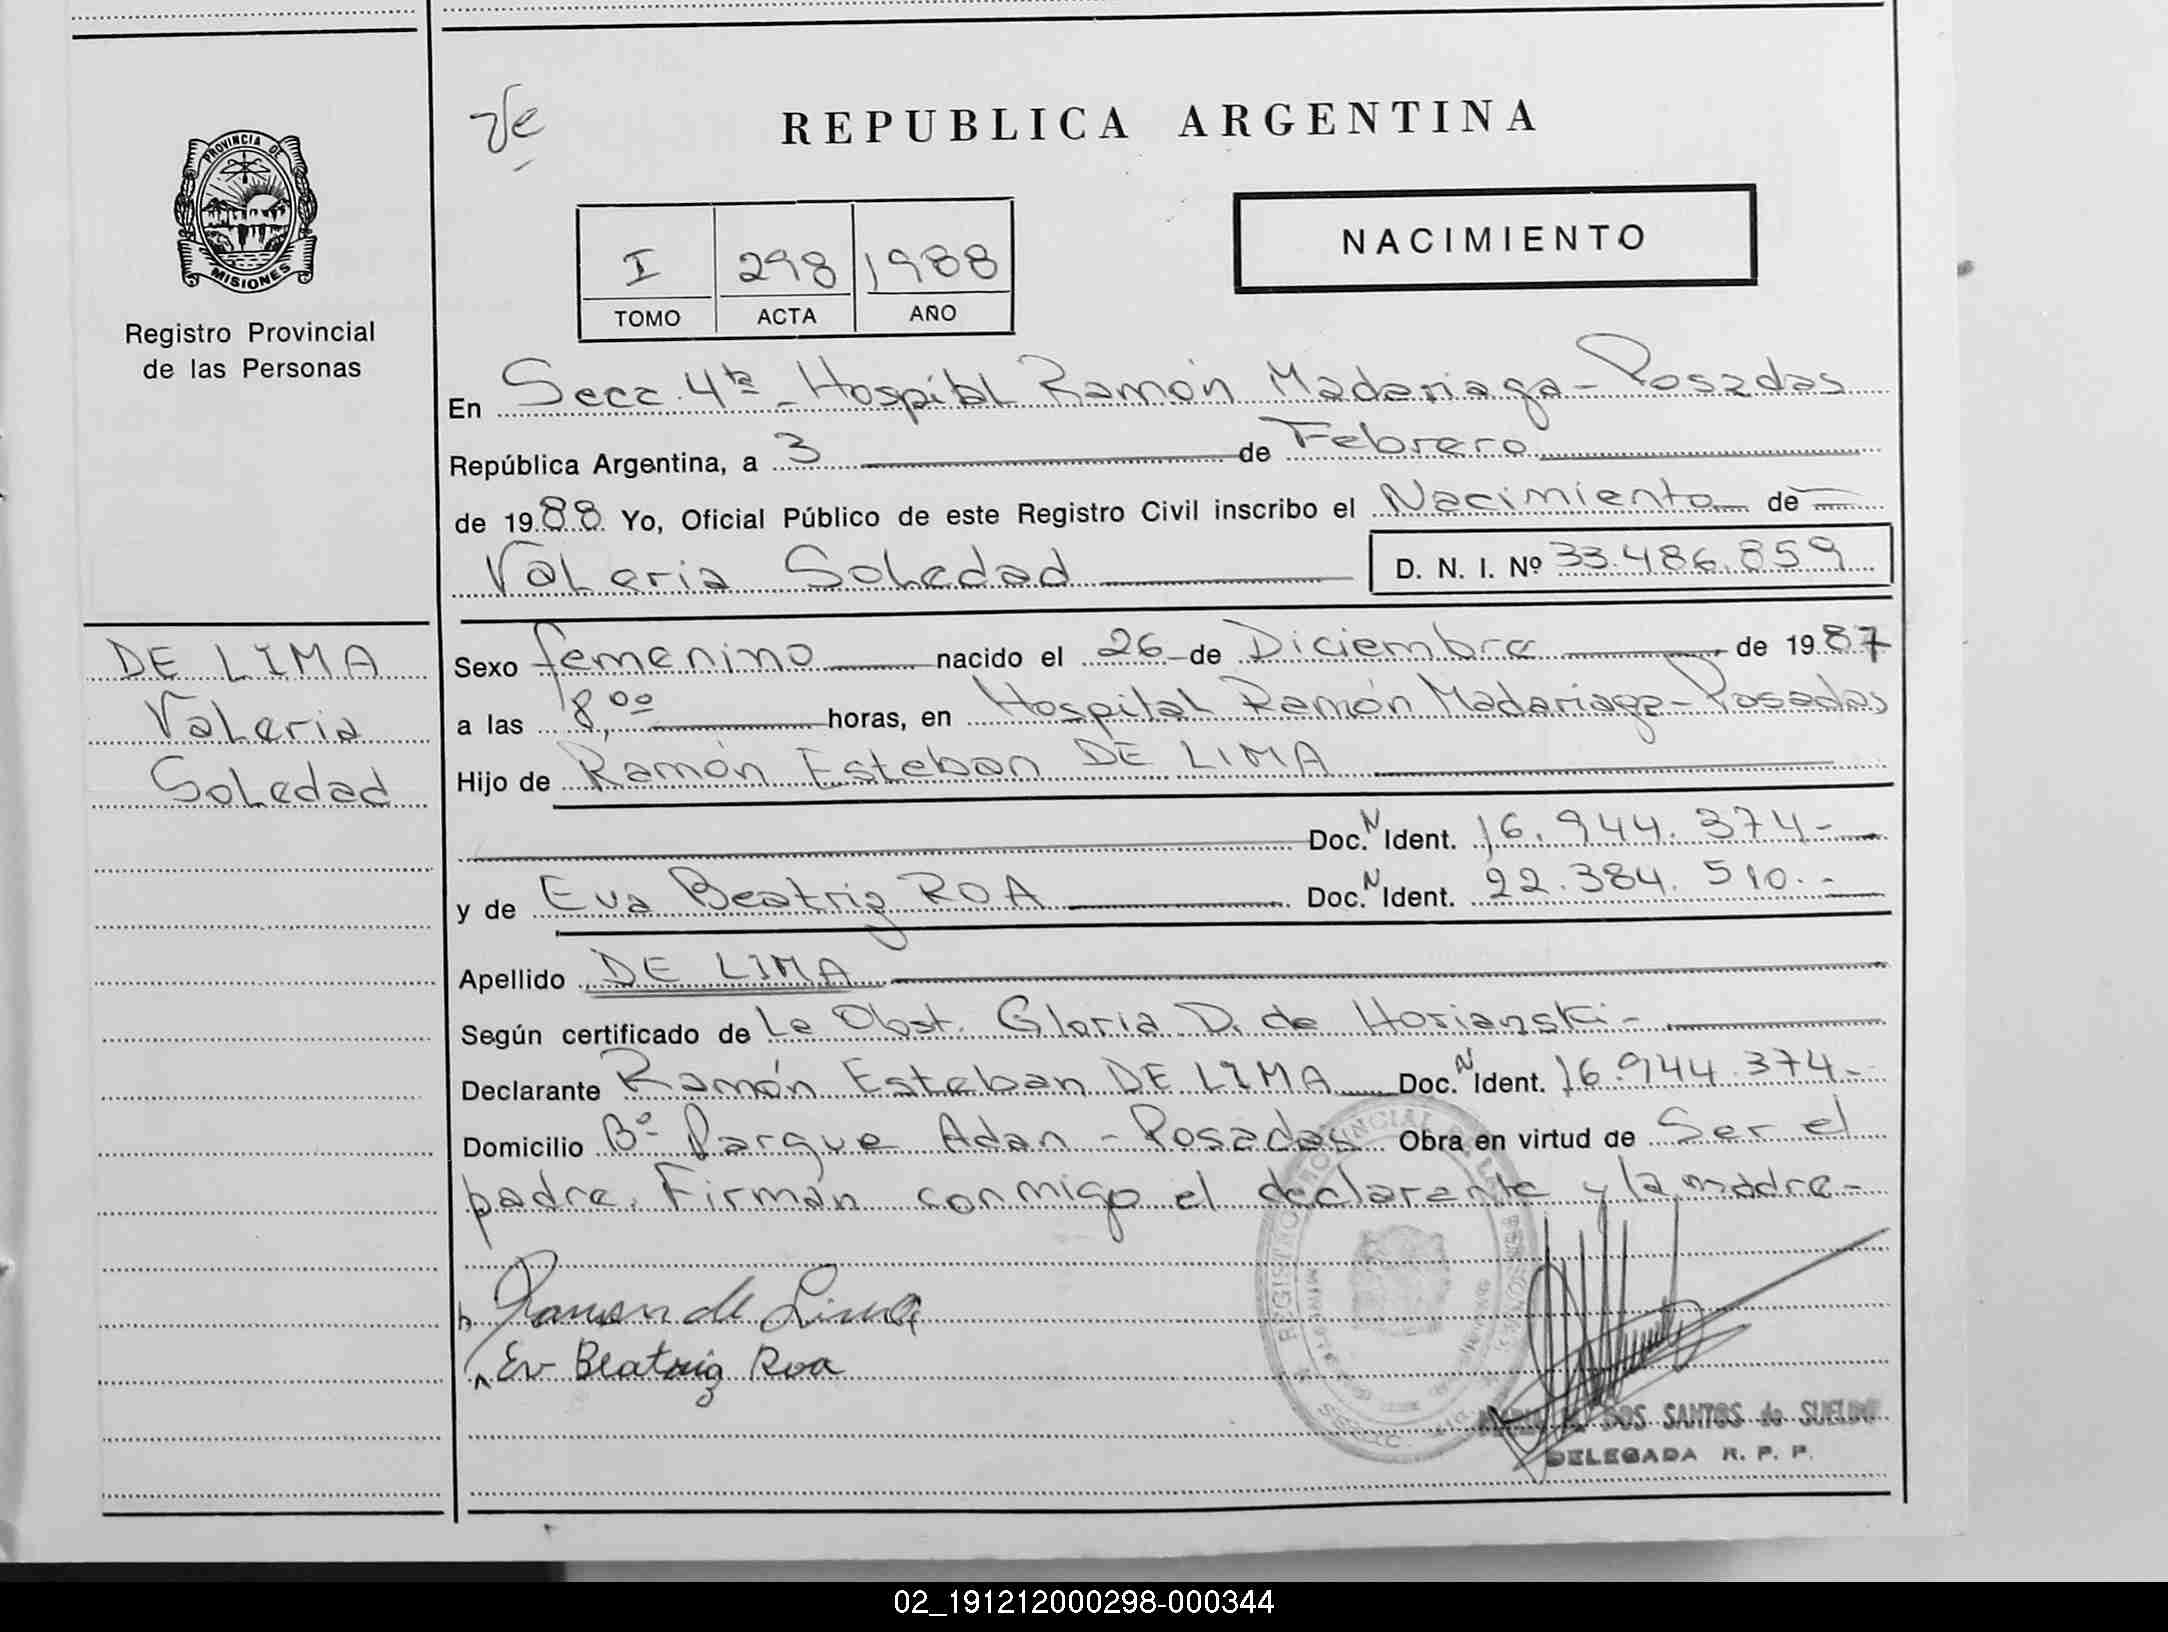 PROVINCIA DE
MISIONES
Registro Provincial
de las Personas
DE LIMA
Valeria
Soledad
REPUBLICA ARGENTINA
I 298 1988
TOMO ACTA AÑO
NACIMIENTO
En Secc. 4ta - Hospital Ramón Madariaga - Posadas
República Argentina, a 3 de Febrero
de 1988 Yo, Oficial Público de este Registro Civil inscribo el Nacimiento de
Valeria Soledad D. N. I. Nº 33.486.859
Sexo femenino nacido el 26 de Diciembre de 1987
a las 8,00 horas, en Hospital Ramón Madariaga - Posadas
Hijo de Ramón Esteban DE LIMA
Doc. N Ident. 16.944.374.-
y de Eva Beatriz ROA Doc. N Ident. 22.384.510.-
Apellido DE LIMA
Según certificado de La Obst. Gloria D. de Hosianski -
Declarante Ramón Esteban DE LIMA Doc. N Ident. 16.944.374.-
Domicilio Bº Parque Adan - Posadas Obra en virtud de Ser el
padre. Firman conmigo el declarante y la madre -
Ramon de Lima
Ev Beatriz Roa
DOS SANTOS de
DELEGADA R. P. P.
02_191212000298-000344